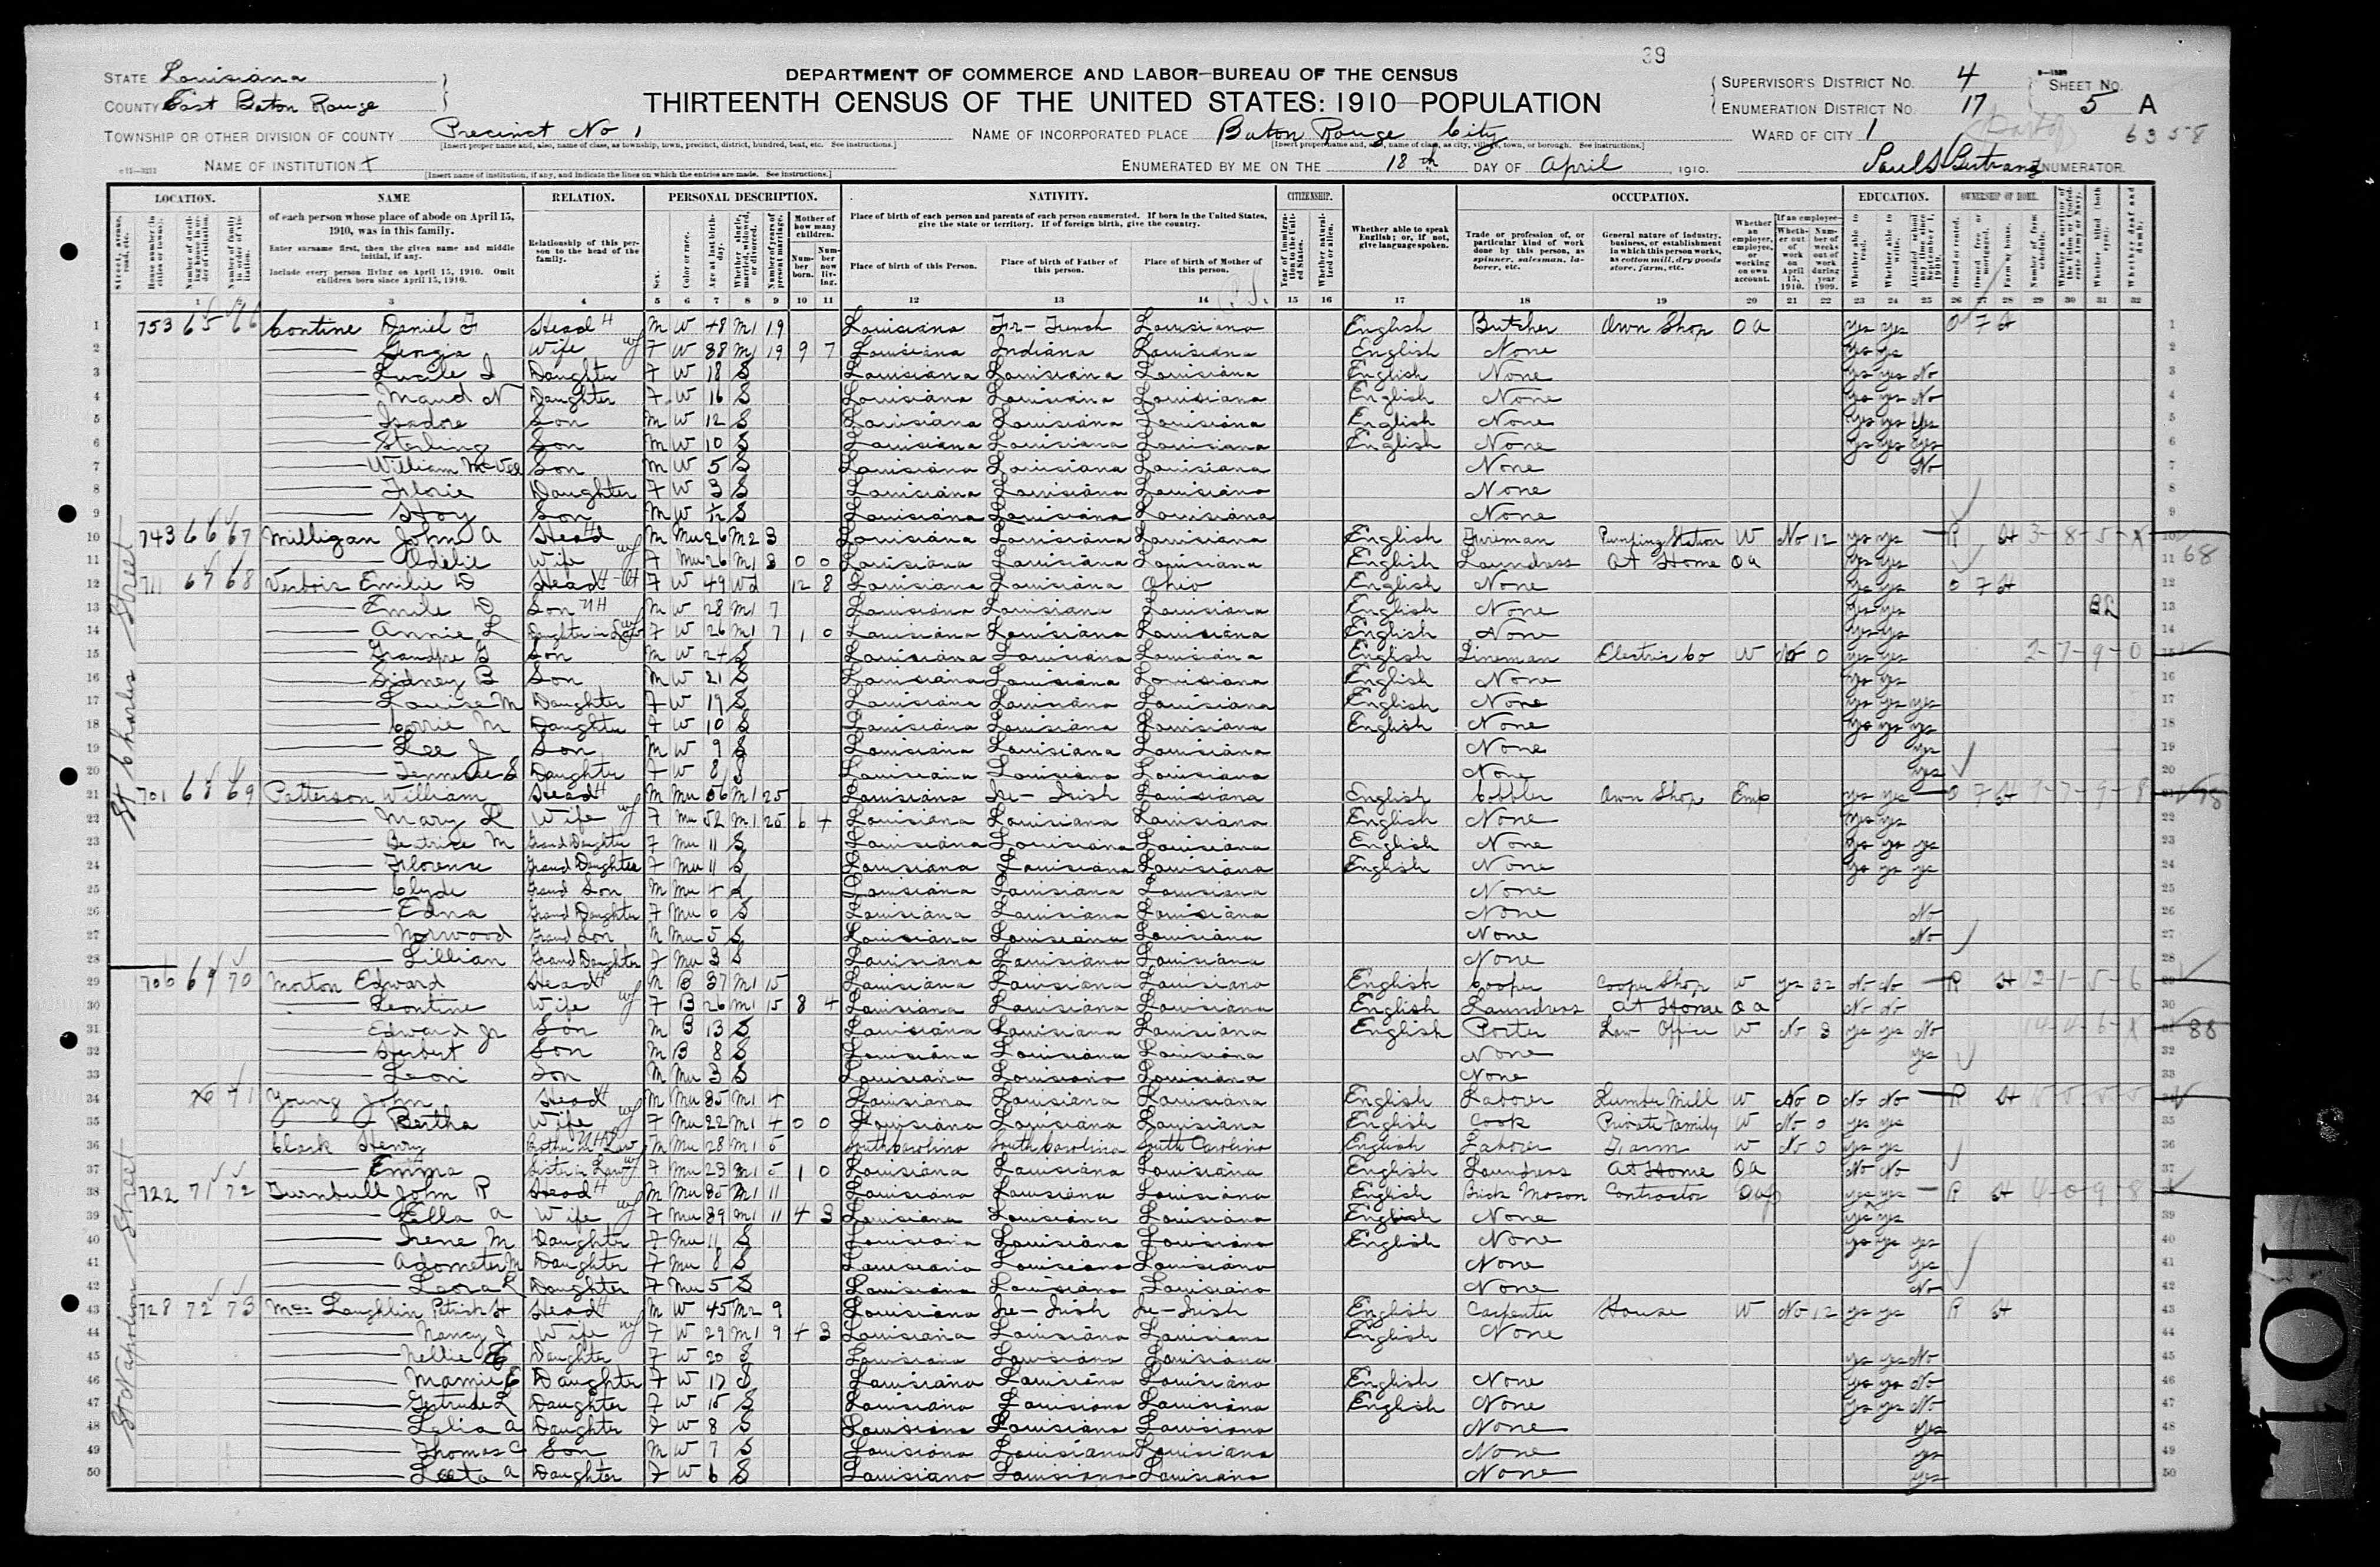 39
STATE Louisiana
COUNTY East Baton Rouge
DEPARTMENT OF COMMERCE AND LABOR—BUREAU OF THE CENSUS
THIRTEENTH CENSUS OF THE UNITED STATES: 1910—POPULATION
SUPERVISOR'S DISTRICT NO. 4
ENUMERATION DISTRICT NO. 17
SHEET NO. 5 A
6358
TOWNSHIP OR OTHER DIVISION OF COUNTY Precinct No 1
NAME OF INCORPORATED PLACE Baton Rouge City
WARD OF CITY 1
NAME OF INSTITUTION X
ENUMERATED BY ME ON THE 18th DAY OF April, 1910.
ENUMERATOR
LOCATION. NAME RELATION. PERSONAL DESCRIPTION. NATIVITY. CITIZENSHIP. OCCUPATION. EDUCATION. OWNERSHIP OF HOME.
of each person whose place of abode on April 15, 1910, was in this family.
Enter surname first, then the given name and middle initial, if any.
Include every person living on April 15, 1910. Omit children born since April 15, 1910.
Relationship of this person to the head of the family.
Place of birth of each person and parents of each person enumerated. If born in the United States, give the state or territory. If of foreign birth, give the country.
Place of birth of this Person. Place of birth of Father of this person. Place of birth of Mother of this person.
Whether able to speak English; or, if not, give language spoken.
Trade or profession of, or particular kind of work done by this person, as spinner, salesman, laborer, etc.
General nature of industry, business, or establishment in which this person works, as cotton mill, dry goods store, farm, etc.
St Charles Street
1 753 65 66 Contine Daniel F Head M W 48 M1 19 Louisiana Fr-French Louisiana English Butcher Own Shop OA yes yes O F H
2 Georgia Wife F W 38 M1 19 9 7 Louisiana Indiana Louisiana English None yes yes
3 Lucile I Daughter F W 18 S Louisiana Louisiana Louisiana English None yes yes No
4 Maud N Daughter F W 16 S Louisiana Louisiana Louisiana English None yes yes No
5 Isadore Son M W 12 S Louisiana Louisiana Louisiana English None yes yes yes
6 Sterling Son M W 10 S Louisiana Louisiana Louisiana English None yes yes yes
7 William McVea Son M W 5 S Louisiana Louisiana Louisiana None No
8 Florie Daughter F W 3 S Louisiana Louisiana Louisiana None
9 Son M W S Louisiana Louisiana Louisiana None
10 743 66 67 Milligan John A Head M Mu 26 M2 3 Louisiana Louisiana Louisiana English Fireman Pumping Station W No 12 yes yes R H 3-8-5-X
11 Odelie Wife F Mu 26 M1 3 0 0 Louisiana Louisiana Louisiana English Laundress At Home OA yes yes 68
12 711 67 68 Verbois Emilie D Head F W 49 Wd 12 8 Louisiana Louisiana Ohio English None yes yes O F H
13 Emile D Son M W 28 M1 7 Louisiana Louisiana Louisiana English None yes yes BL
14 Annie L Daughter in Law F W 26 M1 7 1 0 Louisiana Louisiana Louisiana English None yes yes
15 Grandpre G Son M W 24 S Louisiana Louisiana Louisiana English Lineman Electric Co W No 0 yes yes 2-7-9-0
16 Sidney B Son M W 21 S Louisiana Louisiana Louisiana English None yes yes
17 Louise M Daughter F W 19 S Louisiana Louisiana Louisiana English None yes yes yes
18 Corrie M Daughter F W 10 S Louisiana Louisiana Louisiana English None yes yes yes
19 Lee J Son M W 9 S Louisiana Louisiana Louisiana None yes
20 Daughter F W 8 S Louisiana Louisiana Louisiana None yes
21 701 68 69 Patterson William Head M Mu 56 M1 25 Louisiana Ire-Irish Louisiana English Cobbler Own Shop Emp yes yes O F H
22 Mary L Wife F Mu 52 M1 25 6 4 Louisiana Louisiana Louisiana English None yes yes
23 Beatrice M Grand Daughter F Mu 11 S Louisiana Louisiana Louisiana English None yes yes yes
24 Florence Grand Daughter F Mu 11 S Louisiana Louisiana Louisiana English None yes yes yes
25 Clyde Grand Son M Mu 4 S Louisiana Louisiana Louisiana None
26 Edna Grand Daughter F Mu 6 S Louisiana Louisiana Louisiana None No
27 Norwood Grand Son M Mu 5 S Louisiana Louisiana Louisiana None No
28 Lillian Grand Daughter F Mu 3 S Louisiana Louisiana Louisiana None
29 706 69 70 Morton Edward Head M B 37 M1 15 Louisiana Louisiana Louisiana English Cooper Cooper Shop W yes 32 No No R H 12-1-5-6
30 Leontine Wife F B 26 M1 15 8 4 Louisiana Louisiana Louisiana English Laundress At Home OA No No
31 Edward Jr Son M B 13 S Louisiana Louisiana Louisiana English Porter Law Office W No 3 yes yes No 88
32 Herbert Son M B 8 S Louisiana Louisiana Louisiana None yes
33 Leon Son M Mu 3 S Louisiana Louisiana Louisiana None
St Napoleon Street
34 71 Young John Head M Mu 35 M1 4 Louisiana Louisiana Louisiana English Laborer Lumber Mill W No 0 No No R H
35 Bertha Wife F Mu 22 M1 4 0 0 Louisiana Louisiana Louisiana English Cook Private Family W No 0 yes yes
36 Clark Henry M Mu 28 M1 5 South Carolina South Carolina South Carolina English Laborer Farm W No 0 yes yes
37 Emma Sister in Law F Mu 23 M1 5 1 0 Louisiana Louisiana Louisiana English Laundress At Home OA No No
38 722 71 72 Turnbull John R Head M Mu 35 M1 11 Louisiana Louisiana Louisiana English Brick Mason Contractor yes yes R H 4-0-9-8
39 Ella A Wife F Mu 39 M1 11 4 3 Louisiana Louisiana Louisiana English None yes yes
40 Irene M Daughter F Mu 11 S Louisiana Louisiana Louisiana English None yes yes yes
41 Adometer M Daughter F Mu 8 S Louisiana Louisiana Louisiana None yes
42 Leora L Daughter F Mu 5 S Louisiana Louisiana Louisiana None No
43 728 72 73 McLaughlin Patrick H Head M W 45 M2 9 Louisiana Ire-Irish Ire-Irish English Carpenter House W No 12 yes yes R H
44 Nancy J Wife F W 29 M1 9 4 3 Louisiana Louisiana Louisiana English None
45 Nellie Daughter F W 20 S Louisiana Louisiana Louisiana yes yes No
46 Mamie E Daughter F W 17 S Louisiana Louisiana Louisiana English None yes yes No
47 Gertrude L Daughter F W 15 S Louisiana Louisiana Louisiana English None yes yes No
48 Lelia A Daughter F W 8 S Louisiana Louisiana Louisiana None yes
49 Thomas C Son M W 7 S Louisiana Louisiana Louisiana None yes
50 Leeta A Daughter F W 6 S Louisiana Louisiana Louisiana None yes
101